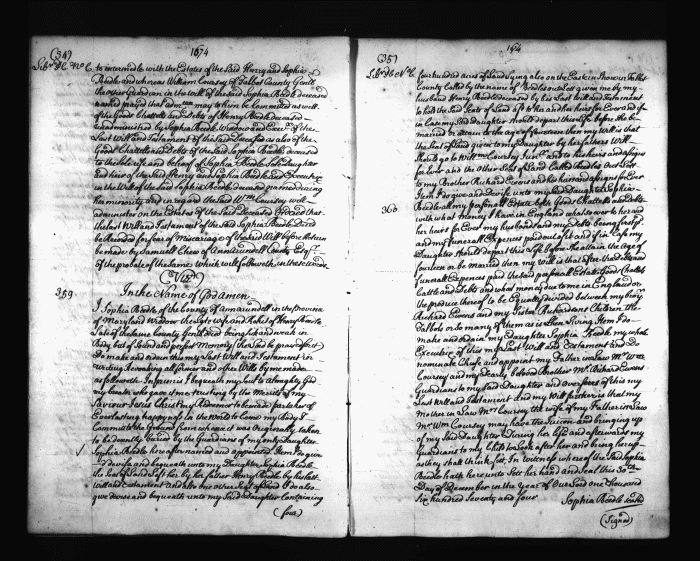 (34) 1674
to intermedle with the Estates of the Said Henry and Sophia
Beedle and whereas William Coursey of Talbot County Gentl
the other Guardian in the Will of the said Sophia Beedle deceased
named prayed that may to him be Committed as well
of the Goods Chattells and Debts of Henry Beedle deceased
unadministred by Sophia Beedle Widdow and of the
Last Will and Testament of the Said Deceased as also of the
Goods Chattells and Debts of the Said Sophia Beedle deceased
to the Sole use and behoof of Sophia Beedle Sole Daughter
and heir of the Said Henry and Sophia Beedle and Executrix
in the Will of the Said Sophia Beedle deceased named during
her minority and in regard the Said Wm Coursey will
administer on the Estates of the Said Deceased Ordered that
the last Will and Testament of the Said Sophia Beedle Dec'ed
be Recorded for fear of Miscariage of the said Will before Return
be made by Samuel Chew of Annarundell County Esqr
of the probate of the same which will followeth in these words
(Vizt)
359
In the Name of God amen
I Sophia Beedle of the County of Annarundell in the Province
of Maryland Widdow the Late wife and Relict of Henry Beedle
Late of the same County Gentl Dec'ed being Sick and weak in
Body but of Sound and perfect Memory the Lord be praised for it
Do make and ordain this my Last Will and Testament in
writing Revoaking all former and other Wills by me made
as followeth Inprimis I bequeath my Soul to Almighty God
my Creator who gave it me trusting by the Merits of my
Saviour Jesus Christ my Redeemer to be made partaker of
Everlasting happyness in the World to Come my Body I
Committ to the Ground from whence it was Originally taken
to be decently buried by the Guardians of my only Daughter
Sophia Beedle hereafter named and appointed Item I do give
devise and bequeath unto my Daughter Sophia Beedle
the Seat of Land Left her by her father Henry Beedle by his last
Will and Testament And also one other Seat of Land I do also
give devise and bequeath unto my Said Daughter Containing
(four)
(35) 1674
four hundred acres of Land Lying also on the Eastern Shore in Talbot
County Called by the name of Beedles outlet given me by my
husband Henry Beedle deceased by his Last Will and Testament
to hold the Said Seats of Land to her and her heirs for Ever and if
in Case my Said Daughter should depart this Life before She be
married or attain to the age of fourteen then my Will is that
the Seat of Land given to my Daughter by her fathers Will
Should go to Willm Coursey Junr and to his heirs and assigns
for Ever and the other Seat of Land Called Beedles Out Lett
to my Brother Richard Ewens and his heirs and assigns for Ever
Item I do give and Devise unto my Said Daughter Sophia
360.
Beedle all my personall Estate both Goods Chattells and Debts
with what Money I have in England whatsoever to her and
her heirs for Ever my husband and my Debts being first paid
and my funerall Expences produced but and if in Case my
Daughter should depart this Life before She attain the Age of
fourteen or be married then my will is that after the debts and
funerall Expences paid the Said personall Estate Goods Chattels
Cattle and Debts and what money is due to me in England or
the produce thereof to be Equally divided betwixt my Brother
Richard Ewens and my Sister Richardsons Children the
Talbots or so many of them as is then Living Item I do
make and Ordain my Daughter Sophia Beedle my whole
Executrix of this my Last Will and Testament and do
nominate Chuse and appoint my Father in Law Mr Wm
Coursey and my dearly beloved Brother Mr Richard Ewens
Guardians to my Said Daughter and overseers of this my
Last Will and Testament And my Will further is that my
Mother in Law Mrs Coursey the wife of my Father in Law
Mr Wm Coursey may have the tuition and bringing up
of my Said Daughter During her life and afterwards my
Guardians to my Child to Look after her and bring her up
as they shall think fitt, In witness whereof the Said Sophia
Beedle hath hereunto Sett her hand and Seal this 30th
Day of December in the Year of Our Lord one thousand
Six hundred Seventy and four Sophia Beedle Sealed
(Signed)